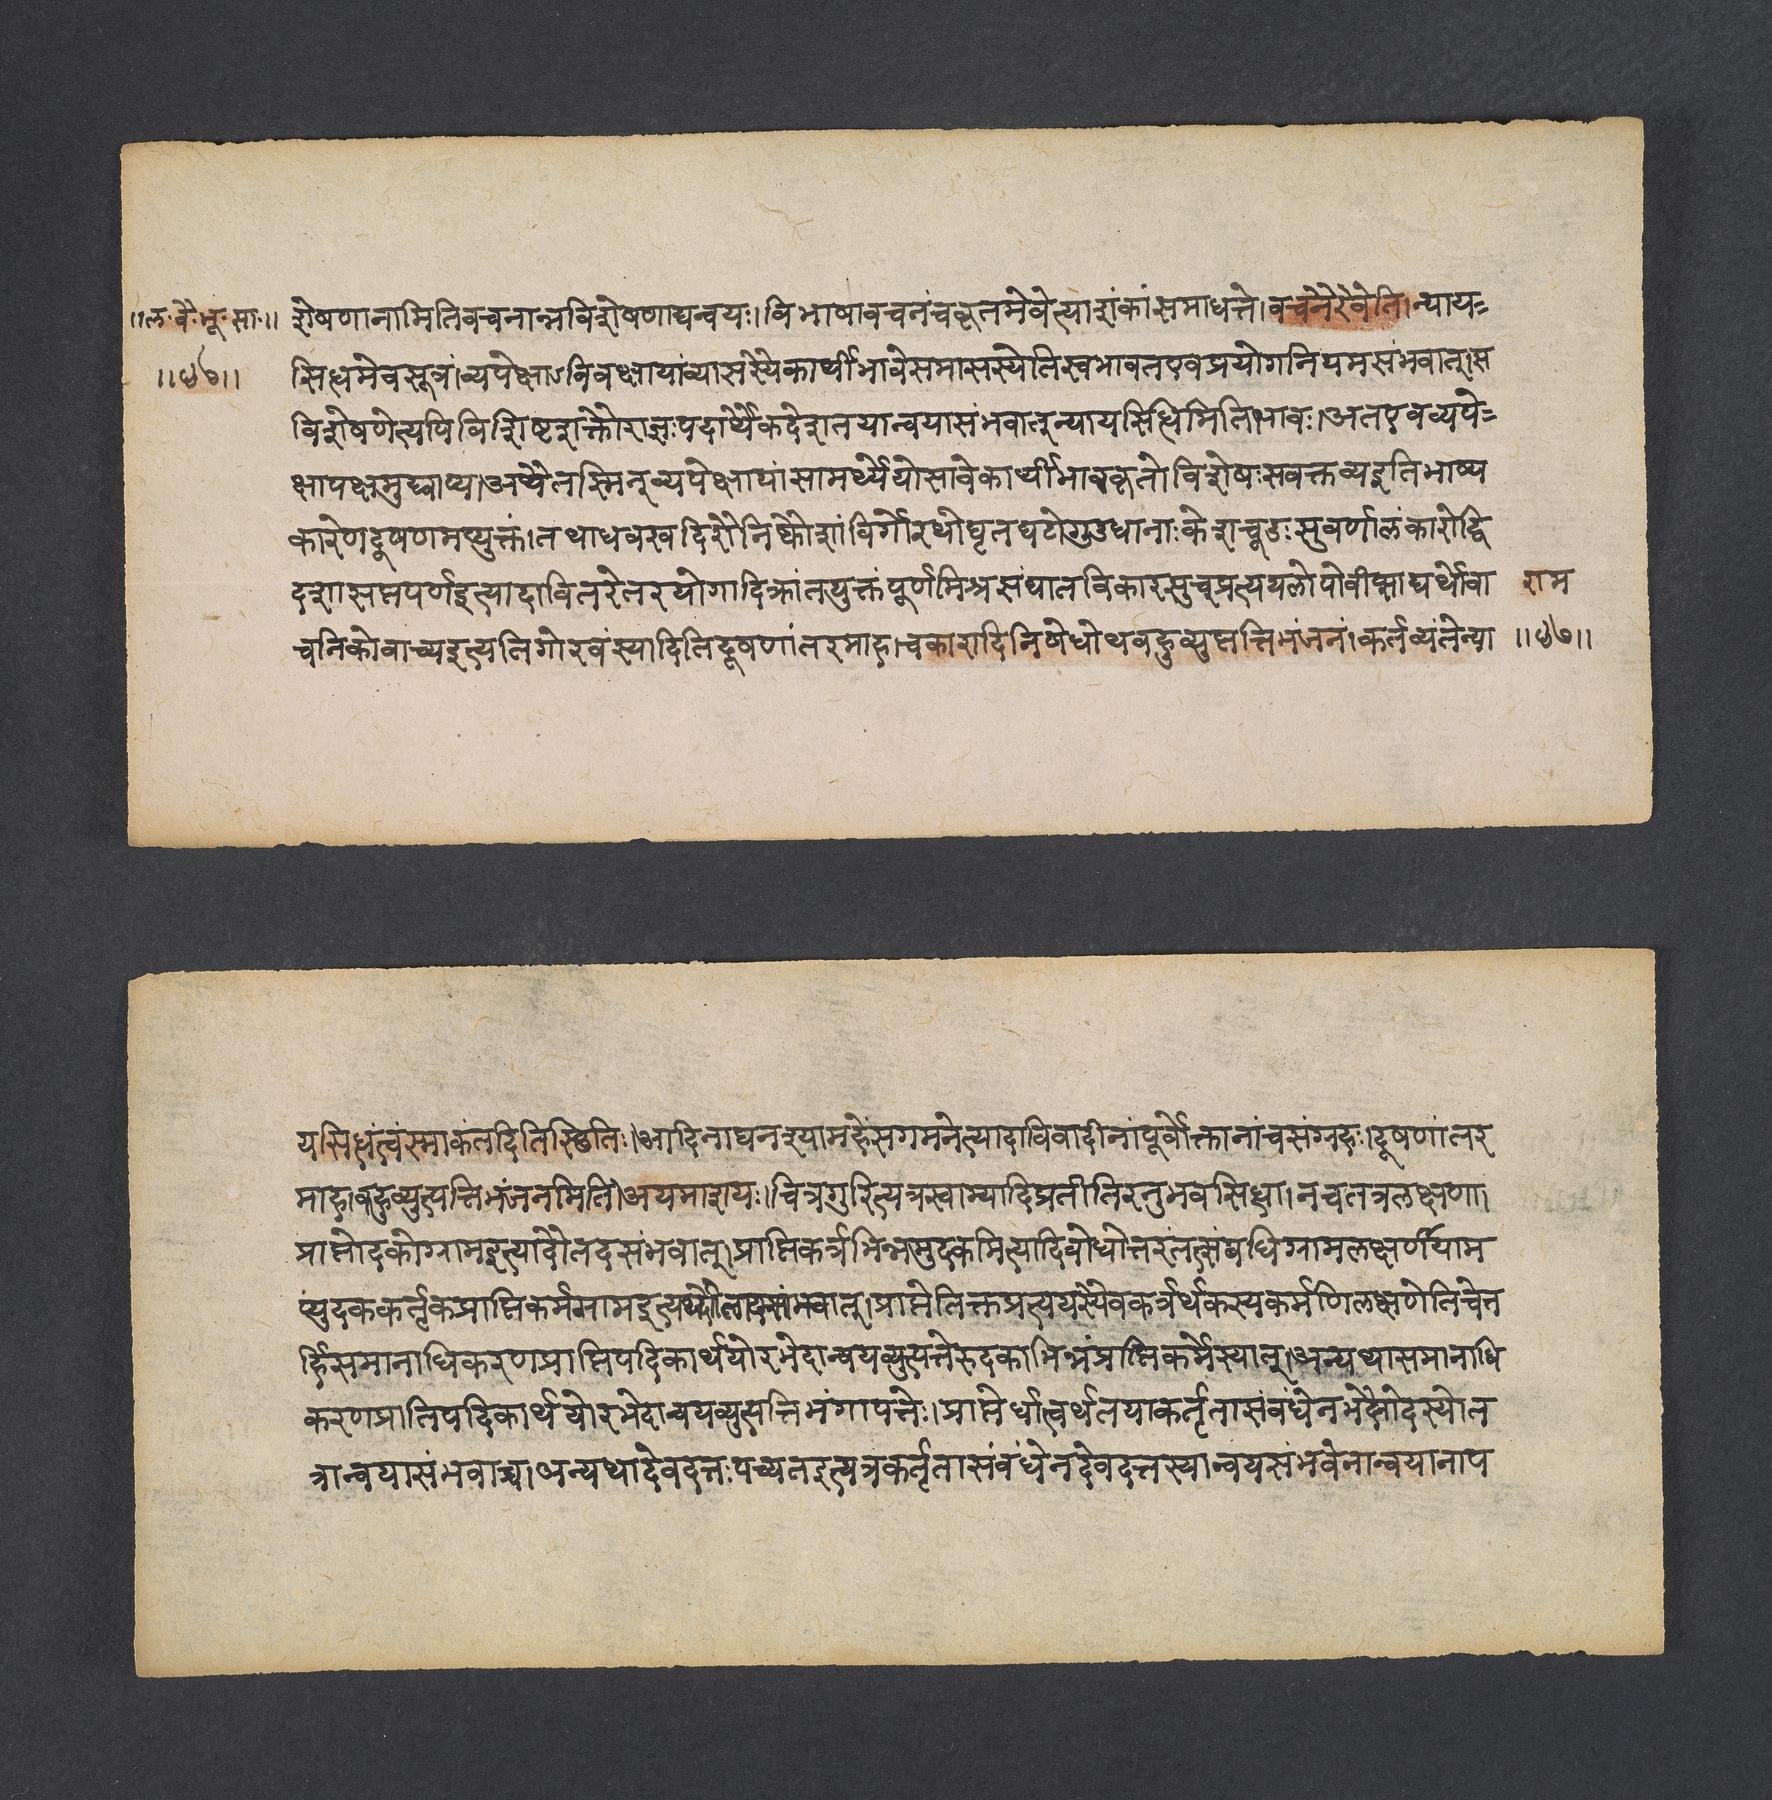 ॥ल॰वै॰भू॰सा॰॥ शेषणानामितिवचनान्नविशेषणाद्यन्वयः।विभाषावचनंचकृतमेवेत्याशंकांसमाधत्ते।वचनैरेवेति।न्याय
॥५७॥ सिद्धमेवसूत्रं।व्यपेक्षाऽविवक्षायांव्यासस्यैकार्थीभावेसमासस्येतिस्वभावतएवप्रयोगनियमसंभवात्।स
विशेषणेत्यपिविशिष्टशक्तौराज्ञःपदार्थैकदेशतयान्वयासंभवात्न्यायसिद्धमितिभावः।अतएवव्यपे
क्षापक्षमुद्भाव्य।अथैतस्मिन्व्यपेक्षायांसामर्थ्येयोसावेकार्थीभावकृतोविशेषःसवक्तव्यइतिभाष्य
कारेणदूषणमप्युक्तं।तथाधवखदिरौनिष्कौशांबिर्गोरथोघृतघटोगुडधानाःकेशचूडःसुवर्णालंकारोद्वि
दशासप्तपर्णइत्यादावितरेतरयोगादिक्रांतयुक्तंपूर्णमिश्रसंघातविकारसुच्प्रत्ययलोपोवीप्साद्यर्थोवा राम
चनिकोवाच्यइत्यतिगौरवंस्यादितिदूषणांतरमाह।चकारादिनिषेधोथबहुव्युत्पत्तिभंजनं।कर्तव्यंतेन्या ॥५७॥
यसिद्धंत्वंस्माकंतदितिस्थितिः।आदिनाघनश्यामहंसगमनेत्यादाविवादीनांपूर्वोक्तानांचसंग्रहः।दूषणांतर
माह।बहुव्युत्पत्तिभंजनमिति।अयमाशयः।चित्रगुरित्यत्रस्वाम्यादिप्रतीतिरनुभवसिद्धा।नचतत्रलक्षणा।
प्राप्तोदकोग्रामइत्यादौतदसंभवात्।प्राप्तिकर्त्रभिन्नमुदकमित्यादिबोधोत्तरंतत्संबंधिग्रामलक्षणायाम
प्युदककर्तृकप्राप्तिकर्मग्रामइत्यर्थालाभात्।प्राप्तेतिक्तप्रत्ययस्यैवकर्त्रर्थकस्यकर्मणिलक्षणेतिचेत्त
र्हिसमानाधिकरणप्रातिपदिकार्थयोरभेदान्वयव्युत्पत्तेरुदकाभिन्नंप्राप्तिकर्मेस्यात्।अन्यथासमानाधि
करणप्रातिपदिकार्थयोरभेदान्वयव्युत्पत्तिभंगापत्तेः।प्राप्तेर्धात्वर्थतयाकर्तृतासंबंधेनभेदेनोदस्योत
त्रान्वयासंभवाच्च।अन्यथादेवदत्तःपच्यतइत्यत्रकर्तृतासंबंधेनदेवदत्तस्यान्वयसंभवेनान्वयानाप